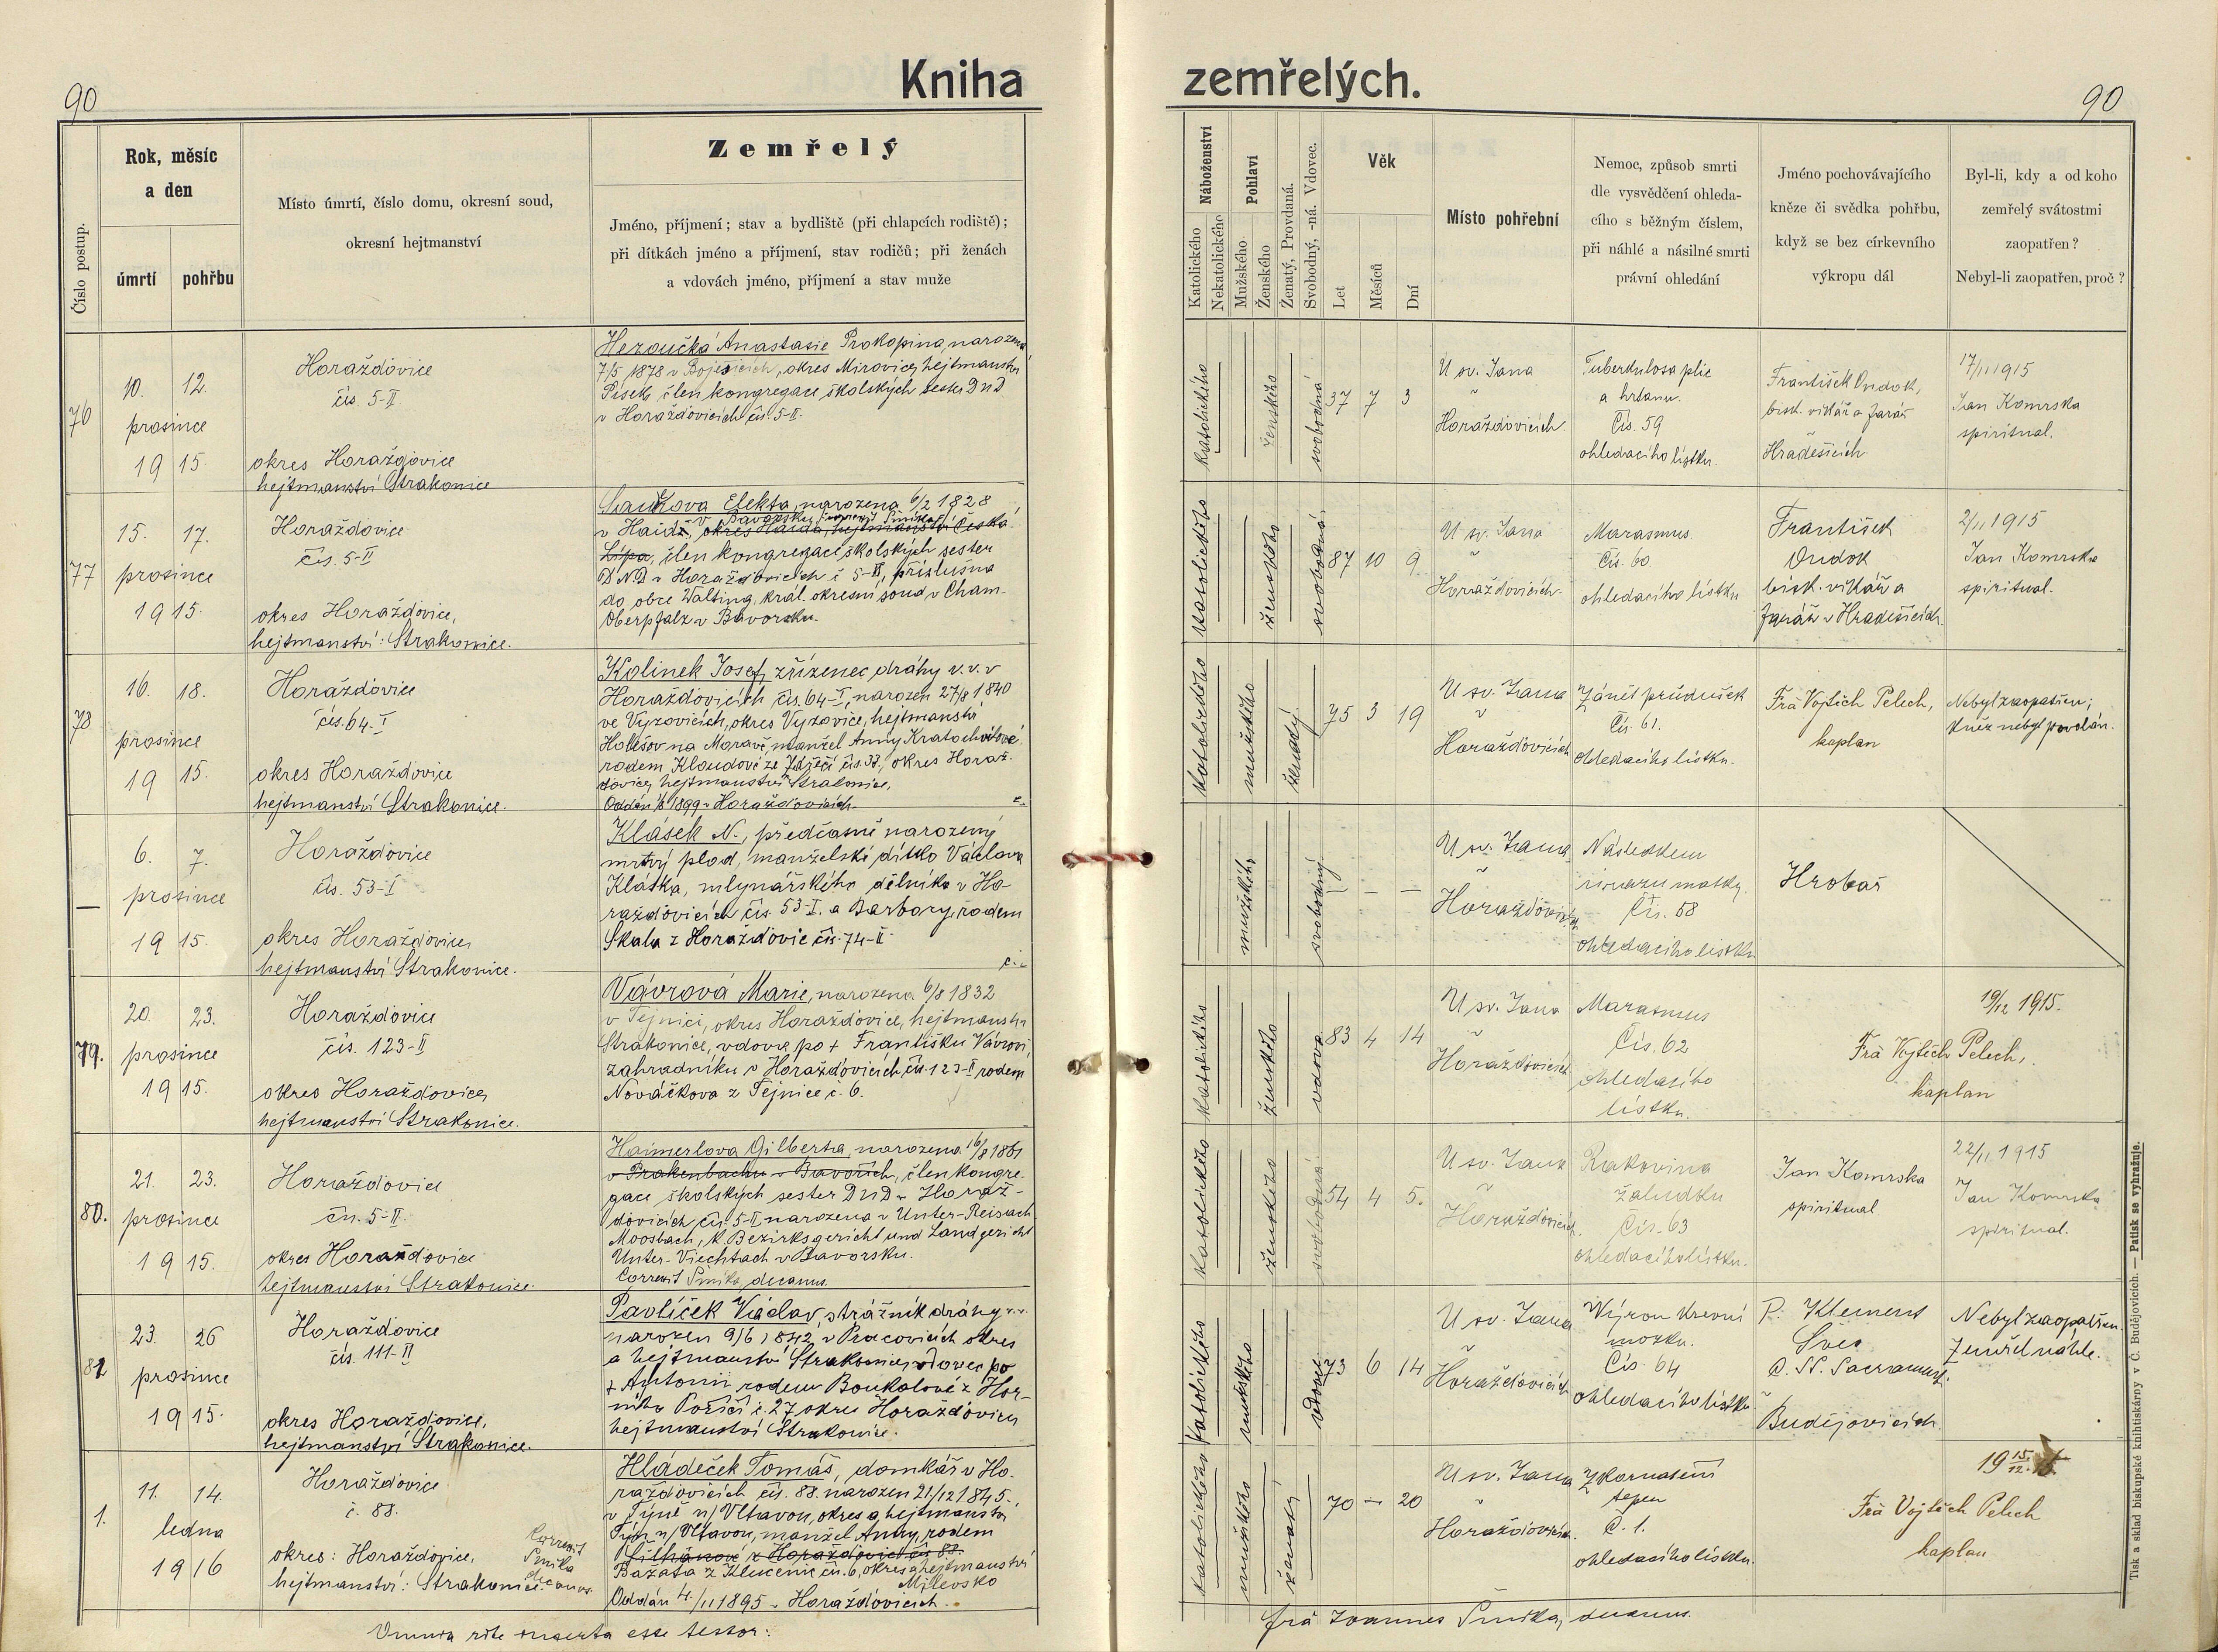 90
Kniha
zemřelých.
90
Číslo postup.
Rok, měsíc
a den
úmrtí
pohřbu
Místo úmrtí, číslo domu, okresní soud,
okresní hejtmanství
Zemřelý
Jméno, příjmení; stav a bydliště (při chlapcích rodiště);
při dítkách jméno a příjmení, stav rodičů; při ženách
a vdovách jméno, příjmení a stav muže
Náboženství
Katolického
Nekatolického
Pohlaví
Mužského
Ženského
Ženatý, Provdaná.
Svobodný, -ná. Vdovec.
Věk
Let
Měsíců
Dní
Místo pohřební
Nemoc, způsob smrti
dle vysvědčení ohleda-
cího s běžným číslem,
při náhlé a násilné smrti
právní ohledání
Jméno pochovávajícího
kněze či svědka pohřbu,
když se bez církevního
výkropu dál
Byl-li, kdy a od koho
zemřelý svátostmi
zaopatřen?
Nebyl-li zaopatřen, proč?
76
10. 12.
prosince
19 15.
Horažďovice
čís. 5-II.
okres Horažďovice
hejtmanství Strakonice
Hezoučká Anastasie Prokopina, narozená
7/5 1878 v Bojenicích, okres Mirovice, hejtmanství
Písek, člen kongregace školských sester D n D
v Horažďovicích čís. 5-II.
katolického
ženského
svobodná
37 7 3
U sv. Jana
v
Horažďovicích.
Tuberkulosa plic
a hrtanu.
Čís. 59
ohledacího lístku.
František Ondok,
bisk. vikář a farář
Hradešicích
17/11 1915
Jan Komrska
spirituál.
77
15. 17.
prosince
19 15.
Horažďovice
čís. 5-II
okres Horažďovice,
hejtmanství: Strakonice.
Elekta, narozena 6/2 1828
v Bavorsku
v Haidě, okres Haida, hejtmanství Česká
Lípa, člen kongregace školských sester
D.N.D v Horažďovicích č 5-II, příslušna
do obce Walting, král. okresní soud v Cham
Oberpfalz v Bavorsku.
katolického
ženského
svobodná
87 10 9
U sv. Jana
v
Horažďovicích.
Marasmus.
Čís. 60
ohledacího lístku
František
Ondok
bisk. vikář a
farář v Hradešicích
2/11 1915
Jan Komrska
spirituál.
78
16. 18.
prosince
19 15.
Horažďovice
čís. 64-I
okres Horažďovice
hejtmanství Strakonice.
Kolinek Josef, zřízenec dráhy v. v. v
Horažďovicích, čís. 64-I, narozen 27/8 1840
ve Vyzovicích, okres Vyzovice, hejtmanství
Holešov na Moravě, manžel Anny Kratochvílové
rodem Kloudové ze čís. 37, okres Horaž-
ďovice, hejtmanství Strakonice.
Oddán 1899 v Horažďovicích.
katolického
mužského
ženatý
75 3 19
U sv. Jana
v
Horažďovicích
Zánět průdušek
Čís. 61.
ohledacího lístku.
Frá Vojtěch Pelech,
kaplan
Nebyl zaopatřen;
kněz nebyl povolán.
—
6. 7.
prosince
19 15.
Horažďovice
čís. 53-I
okres Horažďovice,
hejtmanství Strakonice.
Klásek N., předčasně narozený
mrtvý plod, manželské dítko Václava
Kláska, mlynářského dělníka v Ho-
ražďovicích čís. 53-I. a Barbory, rodem
Skala z Horažďovic čís. 74-II.
mužského
svobodný
— — —
U sv. Jana
v
Horažďovicích
Následkem
úrazu matky.
Čís. 58
ohledacího lístku
Hrobař
79.
20. 23.
prosince
19 15.
Horažďovice
čís. 123-II
okres Horažďovice,
hejtmanství Strakonice.
Vávrová Marie, narozena 6/8 1832
v Tejnici, okres Horažďovice, hejtmanství
Strakonice, vdova po + Františku Vávrovi,
zahradníku v Horažďovicích, čís. 123-II rodem
Nováčkova z Tejnice č. 6.
katolického
ženského
vdova
83 4 14
U sv. Jana
v
Horažďovicích
Marasmus
Čís. 62
ohledacího
lístku.
19/12 1915.
Frá Vojtěch Pelech,
kaplan
80.
21. 23.
prosince
19 15.
Horažďovice
čís. 5-II.
okres Horažďovice
hejtmanství Strakonice.
Haimerlova Gilberta, narozena 16/8 1861
v Prakenbachu v Bavořích, člen kongre-
gace školských sester D n D v Horaž-
ďovicích čís. 5-II narozena v Unter-Reisach
Moosbach, k. Bezirksgericht und Landgericht
Unter-Viechtach v Bavorsku.
Correxit Šmika, decanus.
katolického
ženského
svobodná
54 4 5.
U sv. Jana
v
Horažďovicích
Rakovina
žaludku
Čís. 63
ohledacího lístku.
Jan Komrska
spirituál
22/11 1915
Jan Komrska
spirituál.
81
23. 26
prosince
19 15.
Horažďovice
čís. 111-II
okres Horažďovice,
hejtmanství Strakonice.
Pavlíček Václav, strážník dráhy v. v.
narozen 9/6 1842 v Pracovicích okres
a hejtmanství Strakonice, vdovec po
+ Antonii rodem Boukalové z Hor-
ního Poříčí č. 27 okres Horažďovice
hejtmanství Strakonice.
katolického
mužského
vdovec
73 6 14
U sv. Jana
v
Horažďovicích
Výron krevní
mozku.
Čís. 64
ohledacího lístku
P. Klement
Švec
C. SS. Sacrament.
v
Budějovicích
Nebyl zaopatřen.
Zemřel náhle.
1.
11. 14.
ledna
19 16
Horažďovice
č. 88.
okres: Horažďovice,
hejtmanství: Strakonice.
Correxit
Šmika
decanus.
Hládeček Tomáš, domkář v Ho-
ražďovicích čís. 88. narozen 21/12 1845.,
v Týně n/Vltavou, okres a hejtmanství
Týn n/Vltavou, manžel Anny, rodem
z Horažďovic čís 88.
Bazata z Klučenic čís. 6, okres a hejtmanství
Milevsko
Oddán 4./11 1895 v Horažďovicích.
katolického
mužského
ženatý
70 — 20
U sv. Jana
v
Horažďovicích.
Zkornatění
tepen
Č. 1.
ohledacího lístku.
Frá Vojtěch Pelech
kaplan
Omnia rite inserta esse testor:
frá Joannes Šmika, decanus.
Tisk a sklad biskupské knihtiskárny v Č. Budějovicích. — Patisk se vyhražuje.